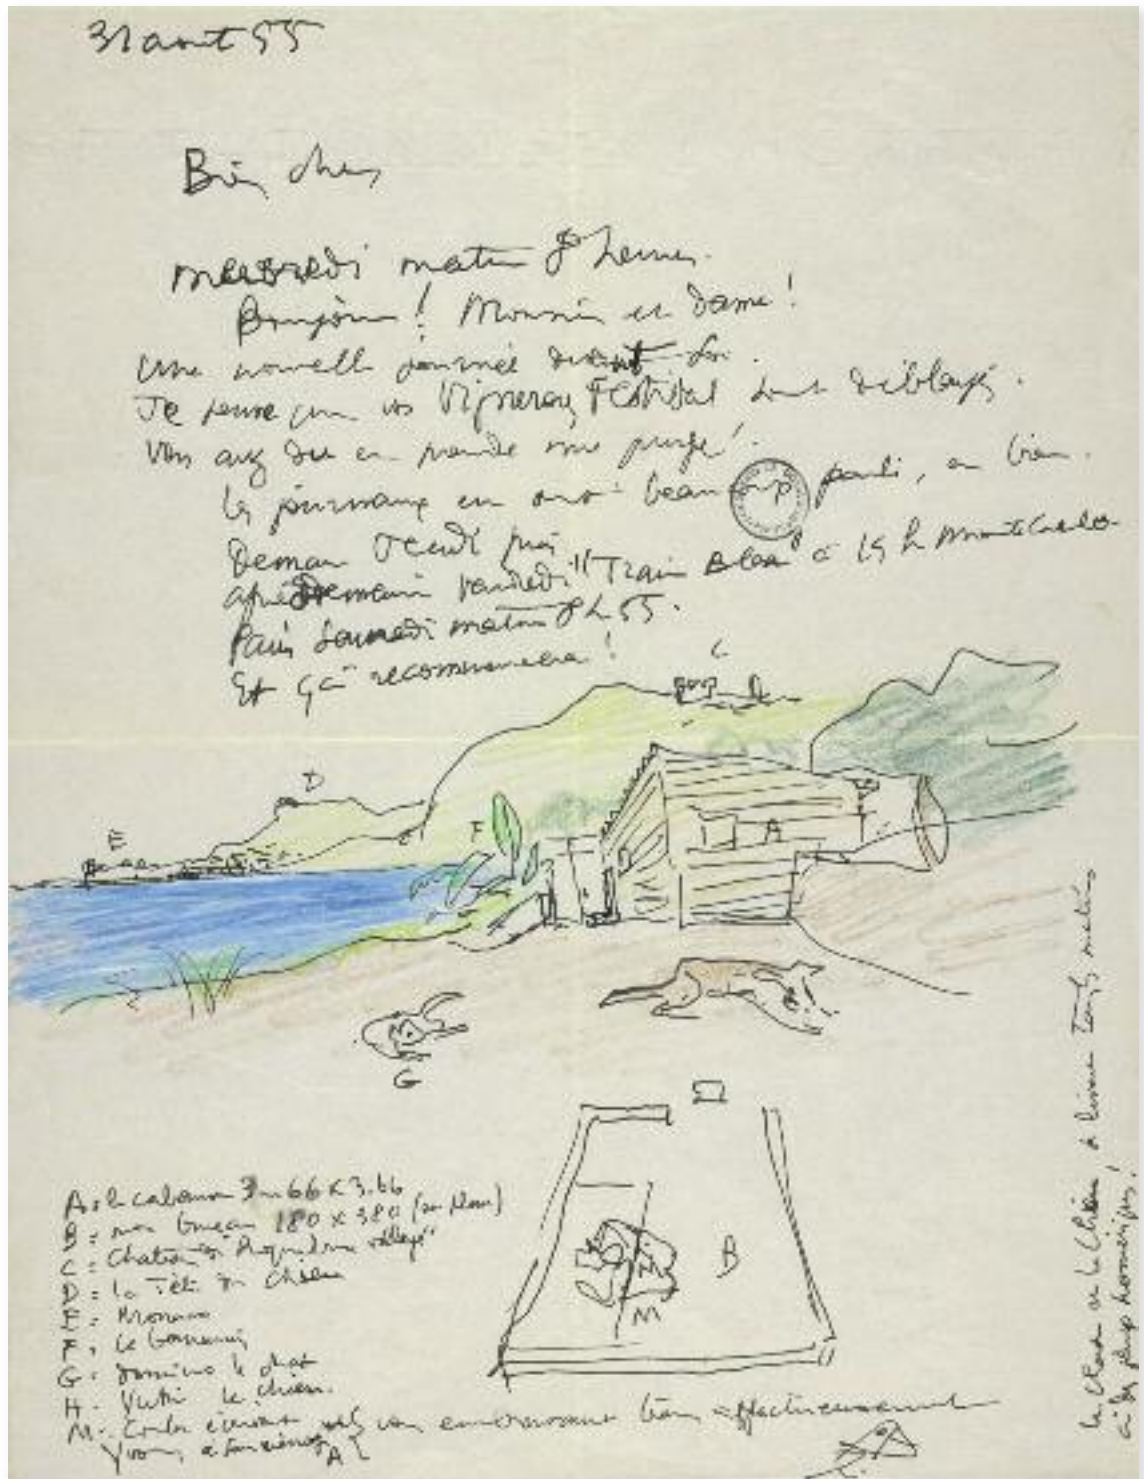 31 août 55
Bien chers
mercredi matin 8 heures.
Bonjour! Monsieur et Dame!
Une nouvelle journée devant soi.
Je pense que vos Vignerons Festival sont déblayés.
Vous avez dû en prendre une purge!
Les journaux en ont beaucoup parlé, en bien.
Demain Jeudi
après Demain Vendredi "Train Bleu" à 15 h Monte Carlo
Paris Samedi matin 8 h 55.
Et çà recommencera!
C
D
E
F
A
G
B
M
A = le cabanon 3m66 x 3.66
B = mon bureau 180 x 380 (en plan)
C = Chateau Roquebrune village"
D = la Tête de Chien
E = Monaco
F = le bananier
G = Domino le chat
H = le chien.
M = Corbu écrivant vous embrassant bien affectueusement
Yvon
le Chat et le Chien se livrent tous les matins
à des jeux homériques!